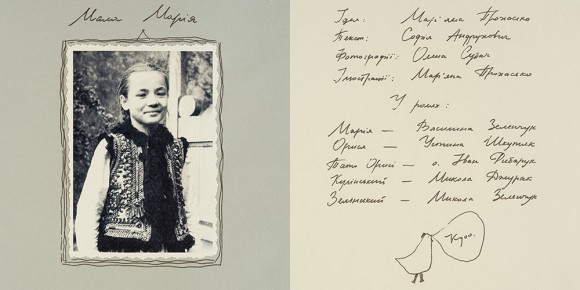 Мала Марія
Ідея: Мар'яна Прохасько
Текст: Софія Андрухович
Фотографії: Олена Субач
Ілюстрації: Мар'яна Прохасько
У ролях:
Марія — Василина Зеленчук
Орися —
Тато Орисі — о. Іван Рибарук
— Микола Джурак
Зеленський — Микола Зеленчук